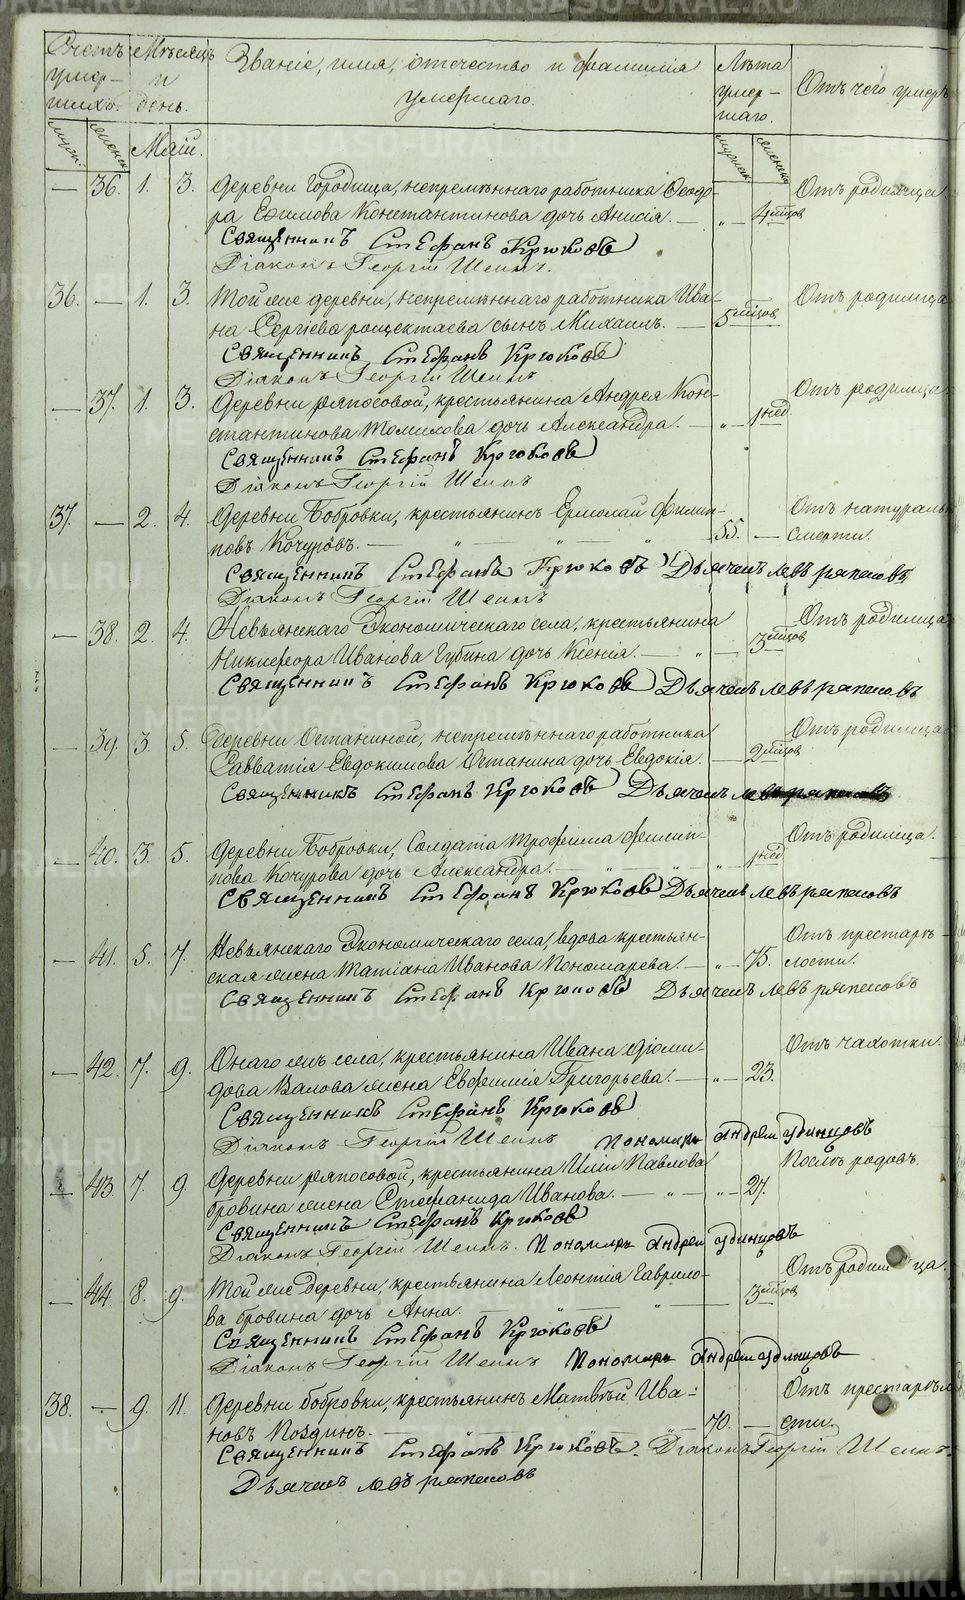 Счетъ умер-шихъ.
Мѣсяцъ и день.
Званіе, имя, отчество и фамилія умершаго.
Лѣта умер-шаго.
Отъ чего умеръ
мужск.
женск.
Маій.
мужск.
женск.
— 36. 1. 3. Деревни Городища, непремѣннаго работника Ѳеодо- Отъ родимца.
ра Ефимова Константинова дочь Анисія. — „ — 4 мѣсцов
Священникъ Стефанъ Крюковъ
Діаконъ Георгій Шеинъ.
36. — 1. 3. Той же деревни, непремѣннаго работника Ива- Отъ родимца
на Сергіева сынъ Михаилъ. — 5 мѣсцов
Священникъ Стефанъ Крюковъ
Діаконъ Георгій Шеинъ
— 37. 1. 3. Деревни Ряпосовой, крестьянина Андрея Кон- Отъ родимца
стантинова Томилова дочь Александра. — „ — 1 нед.
Священникъ Стефанъ Крюковъ
Діаконъ Георгій Шеинъ
37. — 2. 4. Деревни Бобровки, крестьянинъ Ермолай Филип- Отъ натураль
повъ Кочуровъ. — „ „ „ 55. — смерти.
Священникъ Стефанъ Крюковъ Дьячекъ Левъ Ряпосовъ
Діаконъ Георгій Шеинъ
— 38. 2. 4. Невьянскаго Экономическаго села, крестьянина Отъ родимца
Никифора Иванова Губина дочь Ксенія. — „ — 3 мѣсцов
Священникъ Стефанъ Крюковъ Дьячекъ Левъ Ряпосовъ
— 39. 3. 5. Деревни Останиной, непремѣннаго работника Отъ родимца
Савватія Евдокимова Останина дочь Евдокія. — 2 мѣсцов
Священникъ Стефанъ Крюковъ Дьячекъ Левъ Ряпосовъ
— 40. 3. 5. Деревни Бобровки, Солдата Трофима Филип- Отъ родимца.
пова Кочурова дочь Александра. „ „ — 1 нед
Священникъ Стефанъ Крюковъ Дьячекъ Левъ Ряпосовъ
— 41. 5. 7. Невьянскаго Экономическаго села, вдова крестьян- Отъ престарѣ-
ская жена Татіана Иванова Пономарева. — „ — 75. лости.
Священникъ Стефанъ Крюковъ Дьячекъ Левъ Ряпосовъ
— 42. 7. 9. Онаго жъ села, крестьянина Ивана Діоми- Отъ чахотки.
дова жена Евфимія Григорьева. — „ — 23.
Священникъ Стефанъ Крюковъ
Діаконъ Георгій Шеинъ Пономарь Андрей Удинцовъ
— 43. 7. 9. Деревни Ряпосовой, крестьянина Иліи Павлова Послѣ родовъ.
бровина жена Стефанида Иванова. — „ — „ — 27.
Священникъ Стефанъ Крюковъ
Діаконъ Георгій Шеинъ. Пономарь Андрей Удинцовъ
— 44. 8. 9. Той же деревни, крестьянина Леонтія Гаврило- Отъ родимца.
ва бровина дочь Анна. — „ — „ — 3 мѣсцов
Священникъ Стефанъ Крюковъ
Діаконъ Георгій Шеинъ Пономарь Андрей Удинцовъ
38. — 9. 11. Деревни бобровки, крестьянинъ Матвѣй Ива- Отъ престарѣло
новъ — 70. — сти.
Священникъ Стефанъ Крюковъ. Діаконъ Георгій Шеинъ.
Дьячекъ Левъ Ряпосовъ
METRIKI.GASO-URAL.RU